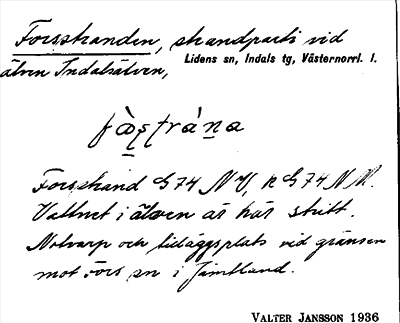 Forsstranden, strandparti vid
älven Indalsälven,
Lidens sn, Indals tg, Västernorrl. l.
fɑ̀ʂʈrá̱na
Forsstrand G74 NV, n G74 NV.
Vattnet i älven är här stritt.
Notvarp och tilläggsplats vid gränsen
mot Fors sn i Jämtland.
VALTER JANSSON 1936